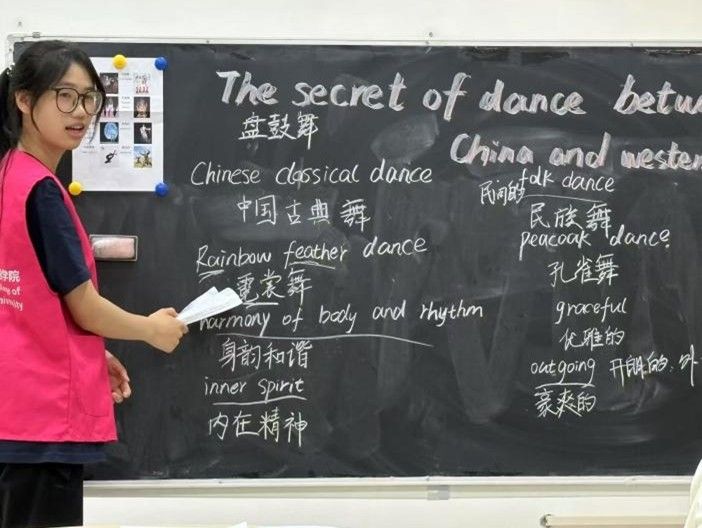 The secret of dance betw
China and wester
盘鼓舞
Chinese classical dance
中国古典舞
Rainbow feather dance
霓裳舞
harmony of body and rhythm
身韵和谐
inner spirit
内在精神
民间的 folk dance
民族舞
peacoak dance
孔雀舞
graceful
优雅的
outgoing 开朗的. 外
豪爽的
学院
ge of
niversity